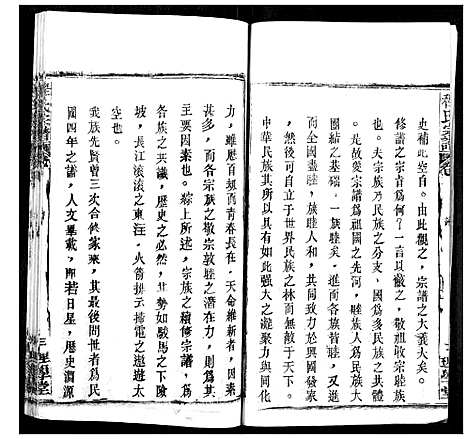 程氏宗譜
史補此空白。由此觀之，宗譜之大義大矣。
修譜之宗旨為何？一言以蔽之，敬祖收宗睦族
也。夫宗族乃民族之分支，國民為民族之主體
。是故愛宗譜為祖國之先河，睦族人為民族
團結之基礎。一族睦，進而各族皆睦，又進
而全國盡睦，族睦人和，共同致力於興國發展
，方可自立于世界民族之林而無往不勝。此即
中華民族其所以具有如此強大之凝聚力與同化
力，雖歷百劫而青春長在，天命維新者，因素
甚多，而各宗族之敬宗敦睦之潛在力，則為其
主要因素也。綜上所述，宗族之續修宗譜，為
各族之共識，歷史之必然，其勢如駿馬之下陵
坡，長江滾滾之東注，火箭掛云掃電之遨遊太
空也。
我族先賢曾三次合修家乘，其最後問世者為民
國四年之譜，人文畢載，昭若日星，歷史淵源
三理學堂